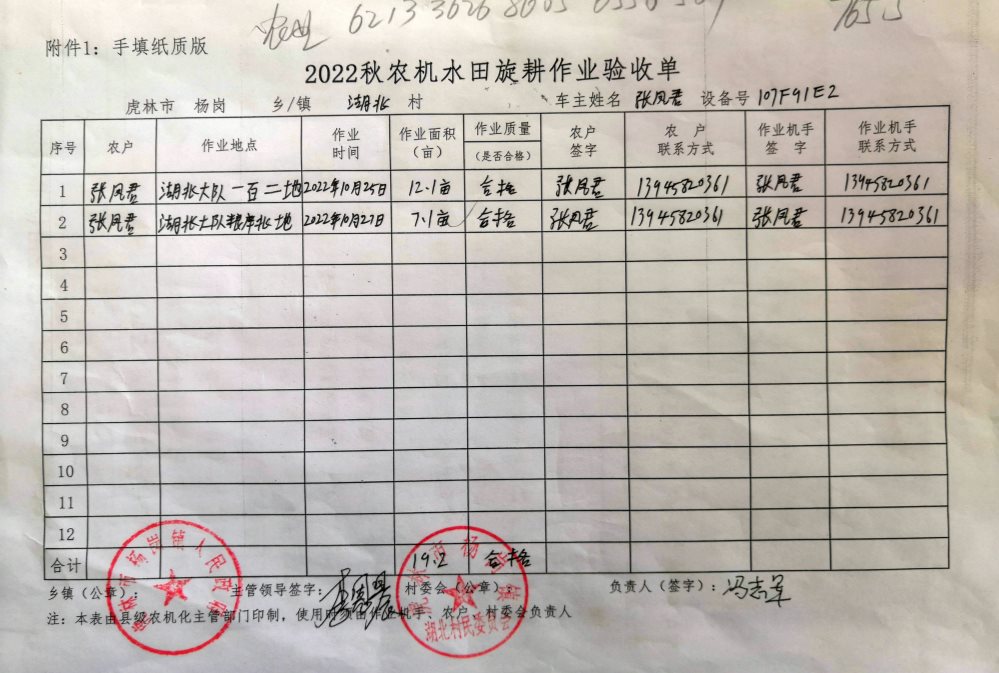 农业 6213 3626 8003
附件1：手填纸质版
2022秋农机水田旋耕作业验收单
虎林市 杨岗 乡/镇 湖北 村 车主姓名 张凤君 设备号 107F91E2
序号 农户 作业地点 作业时间 作业面积（亩） 作业质量（是否合格） 农户签字 农户联系方式 作业机手签字 作业机手联系方式
1 张凤君 湖北大队一百二地 2022年10月25日 12.1亩 合格 张凤君 13945820361 张凤君 13945820361
2 张凤君 湖北大队粮库北地 2022年10月27日 7.1亩 合格 张凤君 13945820361 张凤君 13945820361
3
4
5
6
7
8
9
10
11
12
合计 19.2 合格
乡镇（公章）： 主管领导签字： 村委会（公章）： 负责人（签字）：冯志军
注：本表由县级农机化主管部门印制，使用时须由作业机手、农户、村委会负责人
虎林市杨岗镇人民政府
虎林市杨岗镇
湖北村民委员会